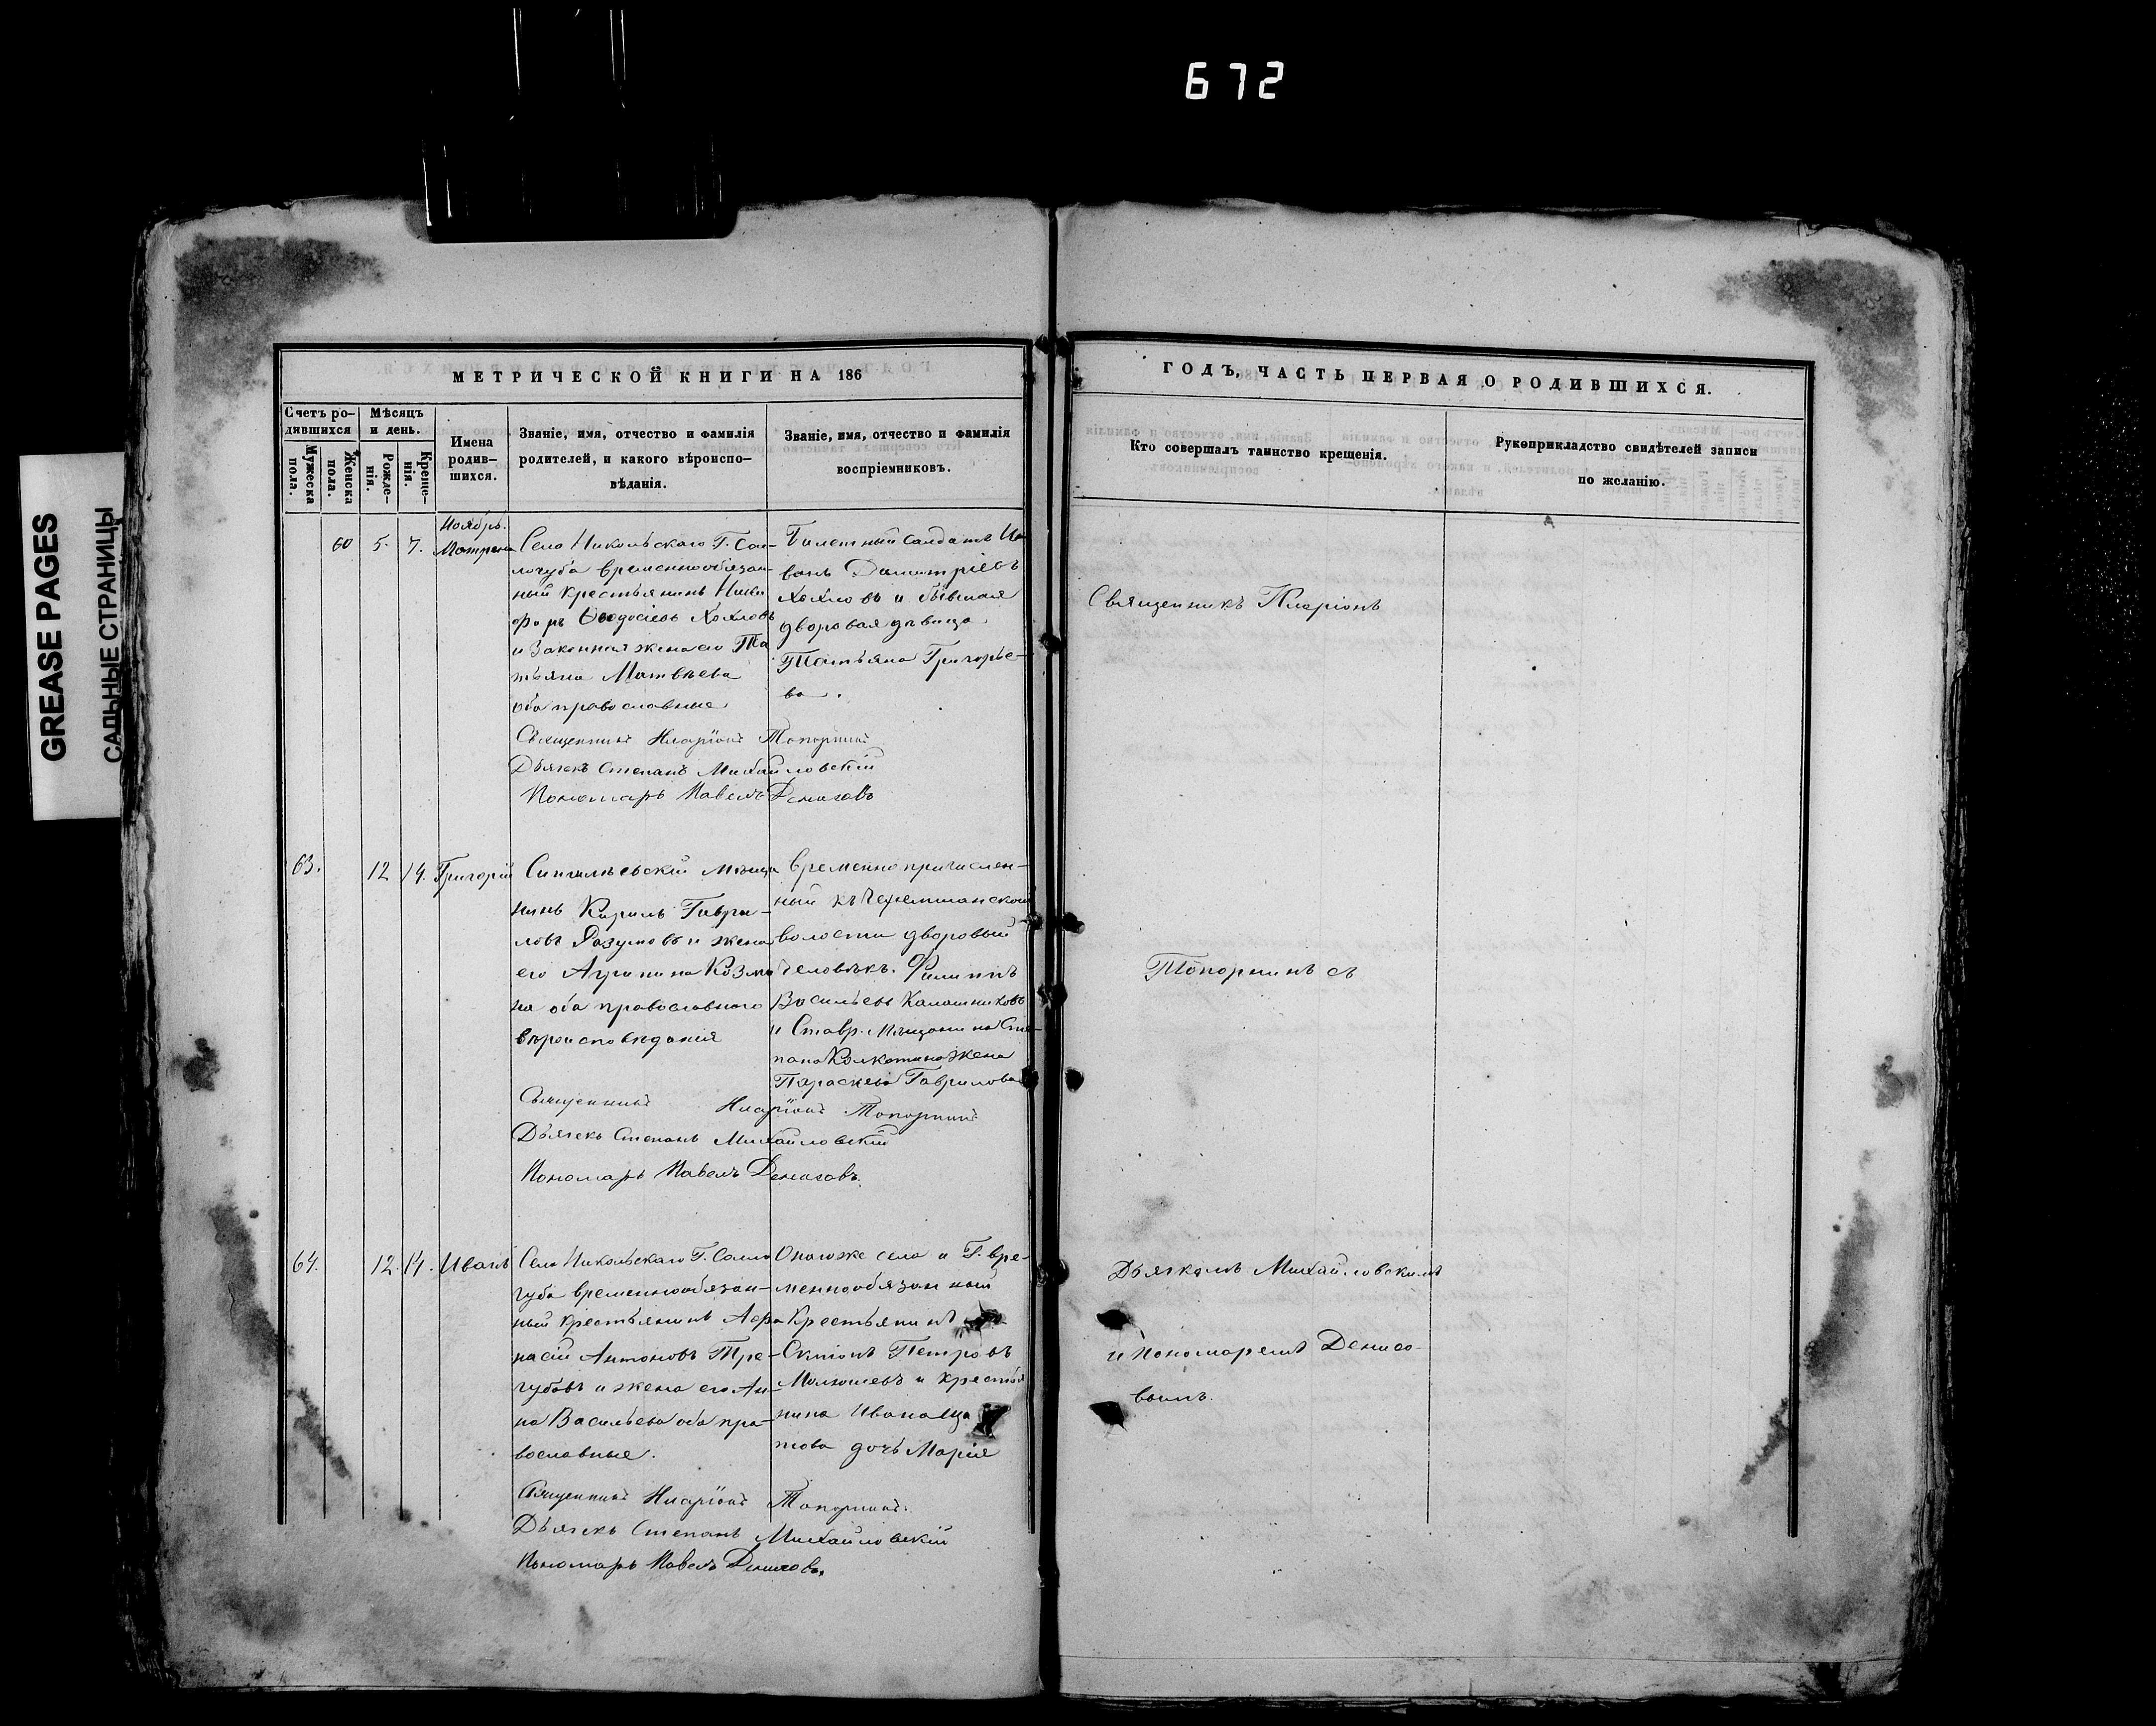 672
GREASE PAGES
САЛЬНЫЕ СТРАНИЦЫ
МЕТРИЧЕСКОЙ КНИГИ НА 186
Счетъ ро-
дившихся
Мужеска
пола.
Женска
пола.
Мѣсяцъ
и день.
Рожде-
нія.
Креще-
нія.
Имена
родив-
шихся.
Званіе, имя, отчество и фамилія
родителей, и какого вѣроиспо-
вѣданія.
Званіе, имя, отчество и фамилія
воспріемниковъ.
Ноябрь.
60 5. 7. Матрена
Село Никольскаго Г. Сол-
логуба временнообязан-
ный крестьянинъ Ники-
форъ Ѳеодосіевъ Хохловъ
и законная жена его Та-
тьяна Матвѣева
оба православные
Билетный солдатъ Ив
ванъ Димитріевъ
Хохловъ и бывшая
дворовая дѣвица
Татьяна Григорье-
ва.
Священникъ Иларіонъ Топорнинъ
Дьячекъ Степанъ Михайловскій
Пономарь Павелъ Денисовъ
63. 12 14. Григорій
мѣща
нинъ Кирилъ Гаври-
ловъ Разумовъ и жена
его Агрипина Козми
на оба православнаго
вѣроисповѣданія
Временно причислен-
ный къ Черемшанской
волости дворовый
человѣкъ Филиппъ
Васильевъ Калашниковъ
и Ставр. мѣщанина Сте-
пана жена
Параскева Гаврилова
Священникъ Иларіонъ Топорнинъ
Дьячекъ Степанъ Михайловскій
Пономарь Павелъ Денисовъ.
64. 12. 14. Иванъ
Село Никольскаго Г. Солло
губа временнообязан-
ный крестьянинъ Афа
насій Антоновъ Тре-
губовъ и жена его Ан-
на Васильева оба пра-
вославные.
Онаго же села и Г. вре-
меннообязанный
Крестьянинъ
Петровъ
и кресть
нина Ивана
това дочь Марія
Священникъ Иларіонъ Топорнинъ.
Дьячекъ Степанъ Михайловскій
Пономарь Павелъ Денисовъ.
ГОДЪ, ЧАСТЬ ПЕРВАЯ О РОДИВШИХСЯ.
Кто совершалъ таинство крещенія.
Рукоприкладство свидѣтелей записи
по желанію.
Священникъ Иларіонъ
Топорнинъ съ
Дьячкомъ Михайловскимъ
и Пономаремъ Денисо-
вымъ.